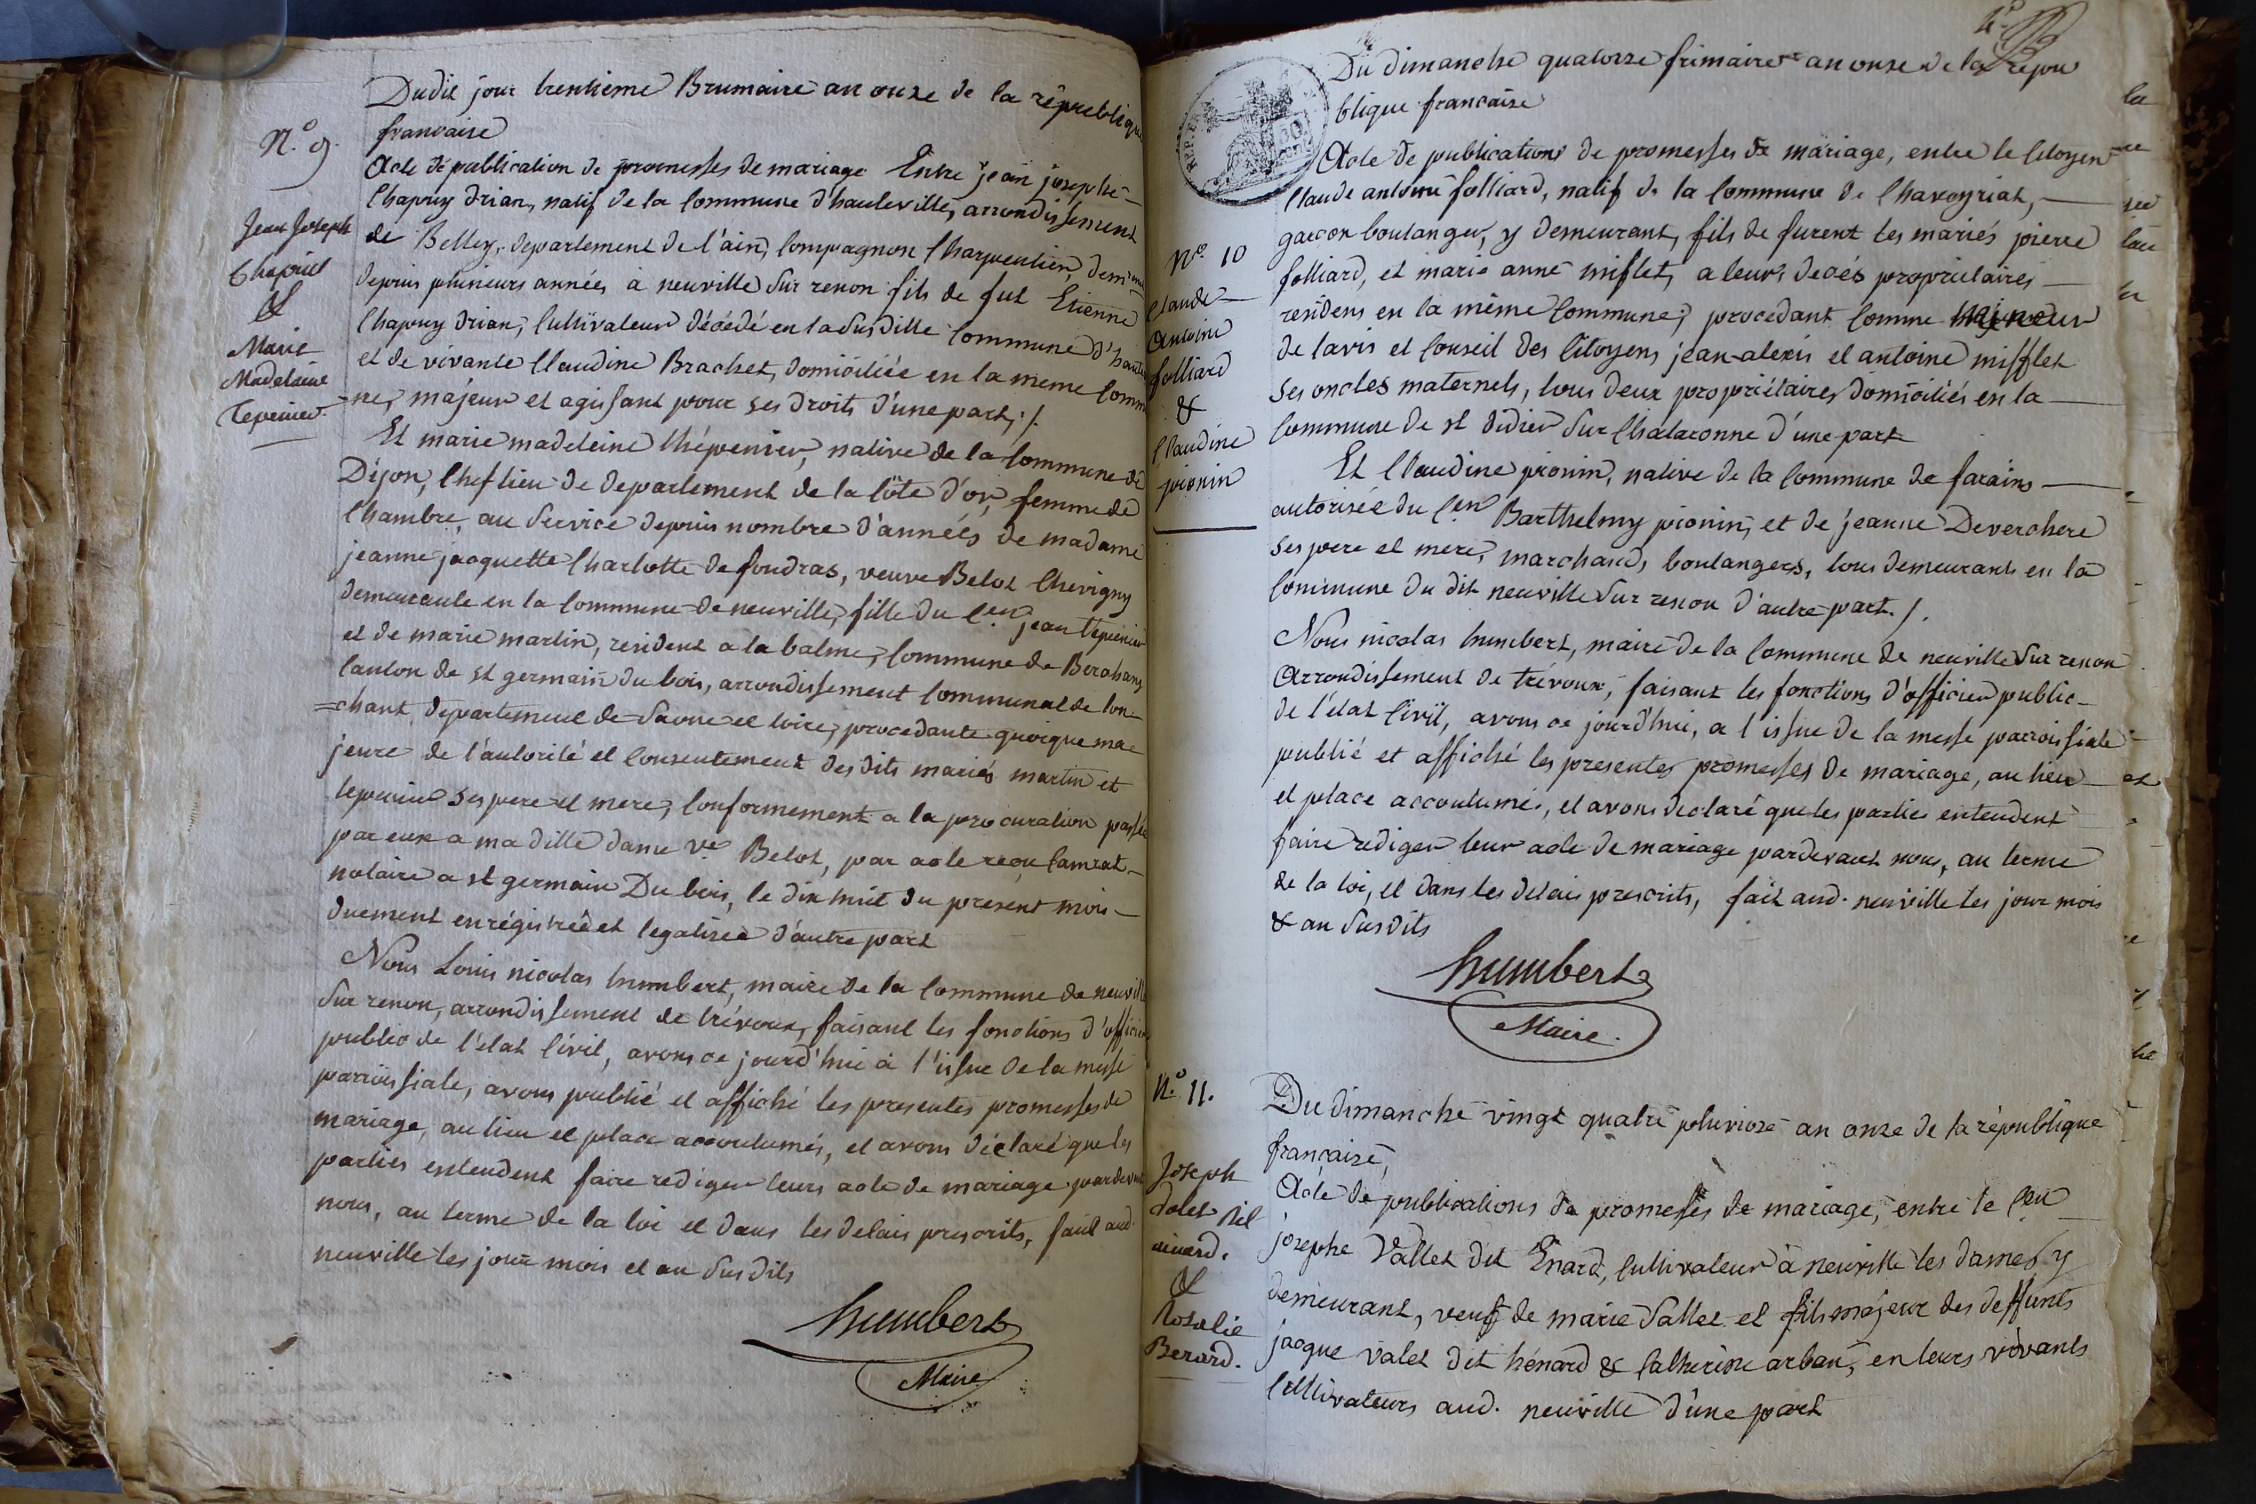 Dudit jour trentième Brumaire an onze de la république
francaise
N.o 9.
Jean Joseph
Chapuit
&
Marie
Madelaine
Tepenier.
Acte de publication de promesses de mariage Entre jean josephe
Chapuy drian, natif de la Commune d'hauteville, arrondissement
de Belley, departement de l'ain, Compagnon Charpentier, demrant
depuis plusieurs années à neuville sur renon fils de fut Etienne
Chapuy drian, Cultivateur décédé en la susditte Commune d'haute
et de vivante Claudine Brachet, domiciliée en la meme Commu
ne, májeur et agissant pour ses droits d'une part, /.
Et marie madeleine thépenier, native de la Commune de
Dijon, Chef lieu de departement de la Côte d'or, femme de
Chambre, au service depuis nombre d'années de madame
jeanne jacquette Charlotte de foudras, veuve Belot Chevigny
demeurante en la Commune de neuville, fille du C.en jean tepenier
et de marie martin, resident a la balme, Commune de Berchany
Canton de st germain du bois, arrondissement Communal de lou
=chant, departement de Saone et loire, procedante quoique ma
jeure de l'autorité et Consentement des dits mariés martin et
tepenier ses pere et mere, Conformement a la procuration passée
par eux a ma ditte dame v.ve Belot, par acte reçu Camrat
notaire a st germain Du bois, le dix huit du présent mois
duement enrégistrée et legalisée d'autre part
Nous Louis nicolas humbert, maire de la Commune de neuville
Sur renon, arrondissement de trévoux, faisant les fonctions d'officier
public de l'état Civil, avons ce jourd'hui à l'issue de la messe
parroissiale, avons publié et affiché les presentes promesses de
mariage, au lieu et place accoutumés, et avons déclaré que les
parties entendent faire rediger leurs acte de mariage pardevant
nous, au terme de la loi et dans les delais prescrits, fait aud.
neuville les jour mois et an susdits
humbert
Maire
Du dimanche quatorze frimaire an onze de la répu
blique francaise
N.o 10
Claude
Antoine
folliard
&
Claudine
pionin
Acte de publications de promesses de mariage, entre le Citoyen
Claude antoine folliard, natif de la Commune de Chaveyriat,
garcon boulanger, y demeurant, fils de furent les mariés pierre
folliard, et marie anne mifflet, a leurs decés proprietaires
residens en la même Commune, procedant Comme mineur
de lavis et Conseil des Citoyens jean-alexis et antoine mifflet
ses oncles maternels, tous deux propriétaires domiciliés en la
Commune de st didier sur Chalaronne d'une part
Et Claudine pionin, native de la Commune de farains
autorisée du C.en Barthelmy pionin, et de jeanne Deverchere
ses pere et mere, marchands, boulangers, tous demeurants en la
Commune du dit neuville sur renon d'autre part. /.
Nous nicolas humbert, maire de la Commune de neuville sur renon
Arrondissement de trévoux, faisant les fonctions d'officier public
de l'état Civil, avons ce jourd'hui, a l'issue de la messe parroissiale
publié et affiché les presentes promesses de mariage, au lieu
et place accoutumés, et avons declaré que les parties entendent
faire rediger leur acte de mariage pardevant nous, au terme
de la loi, et dans les delais prescrits, fait aud. neuville les jour mois
& an susdits
humbert
Maire.
N.o 11.
Joseph
Valet dit
ainard.
&
Rosalie
Berard.
Du dimanche vingt quatre pluviose an onze de la république
française,
Acte de publications de promesses de mariage, entre le C.en
josephe Vallet dit Enard, Cultivateur à neuville les dames y
demeurant, veuf de marie Sallet et fils majeur des deffunts
jacque valet dit hénard & Catherine arban, en leurs vivants
Cultivateurs aud. neuville d'une part